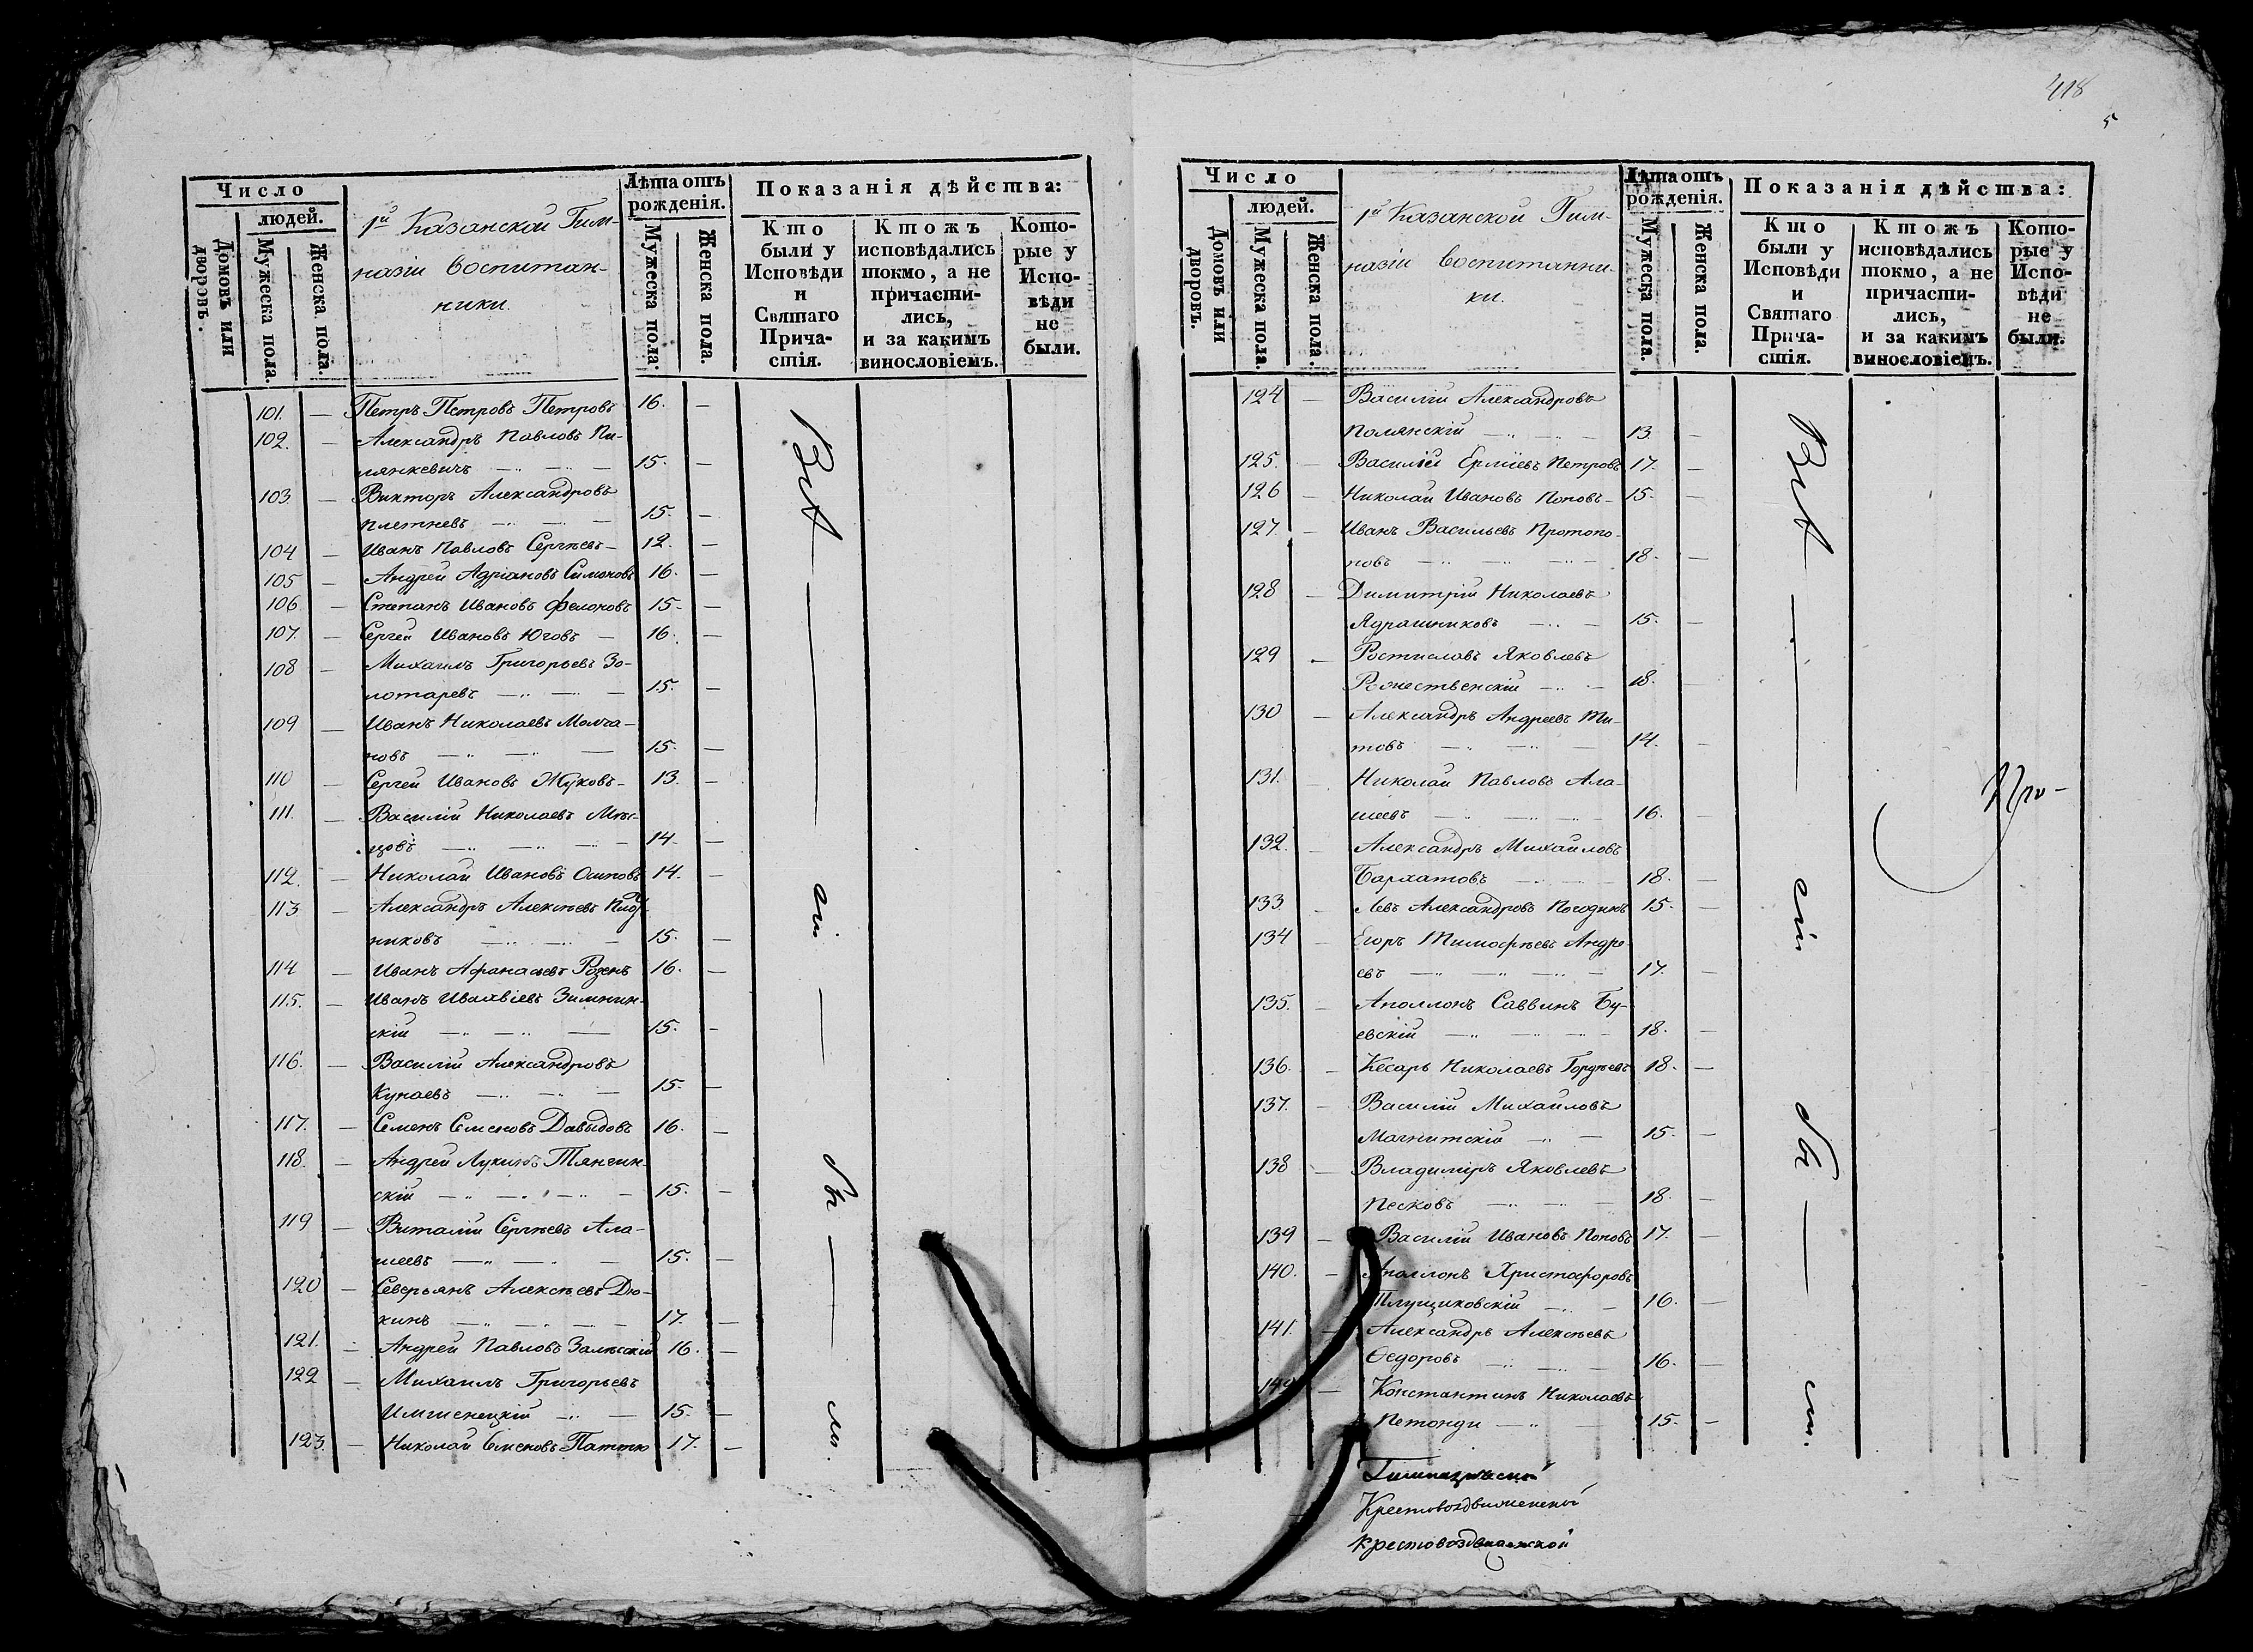 418
5
Число
людей.
Домовъ или дворовъ.
Мужеска пола.
Женска пола.
1й Казанской Гим-
назіи воспитан-
ники.
Лѣта отъ рожденія.
Мужеска пола.
Женска пола.
Показанія дѣйства:
Кто были у Исповѣди и Святаго Прича-стія.
Ктожъ исповѣдались токмо, а не причасти-лись, и за какимъ винословіемъ.
Кото-рые у Испо-вѣди не были.
101. — Петръ Петровъ Петровъ 16. —
102. — Александръ Павловъ Пи-
лянкевичъ 15. —
103 — Викторъ Александровъ
Плетневъ 15. —
104 — Иванъ Павловъ Сергѣевъ 12. —
105 — Андрей Адріановъ Симоновъ 16. —
106 — Степанъ Ивановъ Филоновъ 15. —
107. — Сергей Ивановъ Юговъ — 16. —
108 — Михаилъ Григорьевъ Зо-
лотаревъ 15. —
109 — Иванъ Николаевъ Молча-
новъ 15. —
110 — Сергей Ивановъ Жуковъ 13. —
111. — Василій Николаевъ
цовъ 14. —
112. — Николай Ивановъ Осиповъ 14. —
113 — Александръ Алексѣевъ
никовъ 15. —
114 — Иванъ Афанасьевъ Розенъ 16. —
115. — Иванъ Зилинин-
скій 15. —
116. — Василій Александровъ
Кунаевъ 15. —
117. — Семенъ Семеновъ Давыдовъ 16. —
118. — Андрей Лукинъ Тянгин-
скій 15. —
119 — Виталій Сергѣевъ Ала-
шеевъ 15. —
120 — Северьянъ Алексѣевъ Дю-
кинъ 17. —
121. — Андрей Павловъ Залѣсскій 16. —
122 — Михаилъ Григорьевъ
Имшенецкій 15. —
123. — Николай Семеновъ 17. —
Всѣ — сіи — бы — ли.
Число
людей.
Домовъ или дворовъ.
Мужеска пола.
Женска пола.
1й Казанской Гим-
назіи воспитанни-
ки.
Лѣта отъ рожденія.
Мужеска пола.
Женска пола.
Показанія дѣйства:
Кто были у Исповѣди и Святаго Прича-стія.
Ктожъ исповѣдались токмо, а не причасти-лись, и за какимъ винословіемъ.
Кото-рые у Испо-вѣди не были.
124 — Василій Александровъ
Полянскій 13. —
125. — Василій Ерміевъ Петровъ 17. —
126 — Николай Ивановъ Поповъ 15. —
127. — Иванъ Васильевъ Протопо-
повъ 18. —
128 — Димитрій Николаевъ
Ядрашниковъ 15. —
129 — Ростиславъ Яковлевъ
Рожественскій 18. —
130 — Александръ Андреевъ Ти-
товъ 14. —
131. Николай Павловъ Ала-
шеевъ 16. —
132. — Александръ Михайловъ
Бархатовъ 18. —
133. — Левъ Александровъ Погодинъ 15. —
134 — Егоръ Тимофѣевъ Андре-
евъ 17. —
135. — Аполлонъ Саввинъ Бу-
евскій 18. —
136. — Кесарь Николаевъ Гордѣевъ 18. —
137. — Василій Михайловъ
Магнитскій 15. —
138 — Владиміръ Яковлевъ
Песковъ 18. —
139 — Василій Ивановъ Поповъ 17. —
140. — Аполлонъ Христофоровъ
Плущиковскій 16. —
141. — Александръ Алексѣевъ
Ѳедоровъ 16. —
142 — Константинъ Николаевъ
Петонди 15. —
Всѣ — сіи — бы — ли.
Про-
Гимназической
Крестовоздвиженской
Крестовоздвиженской